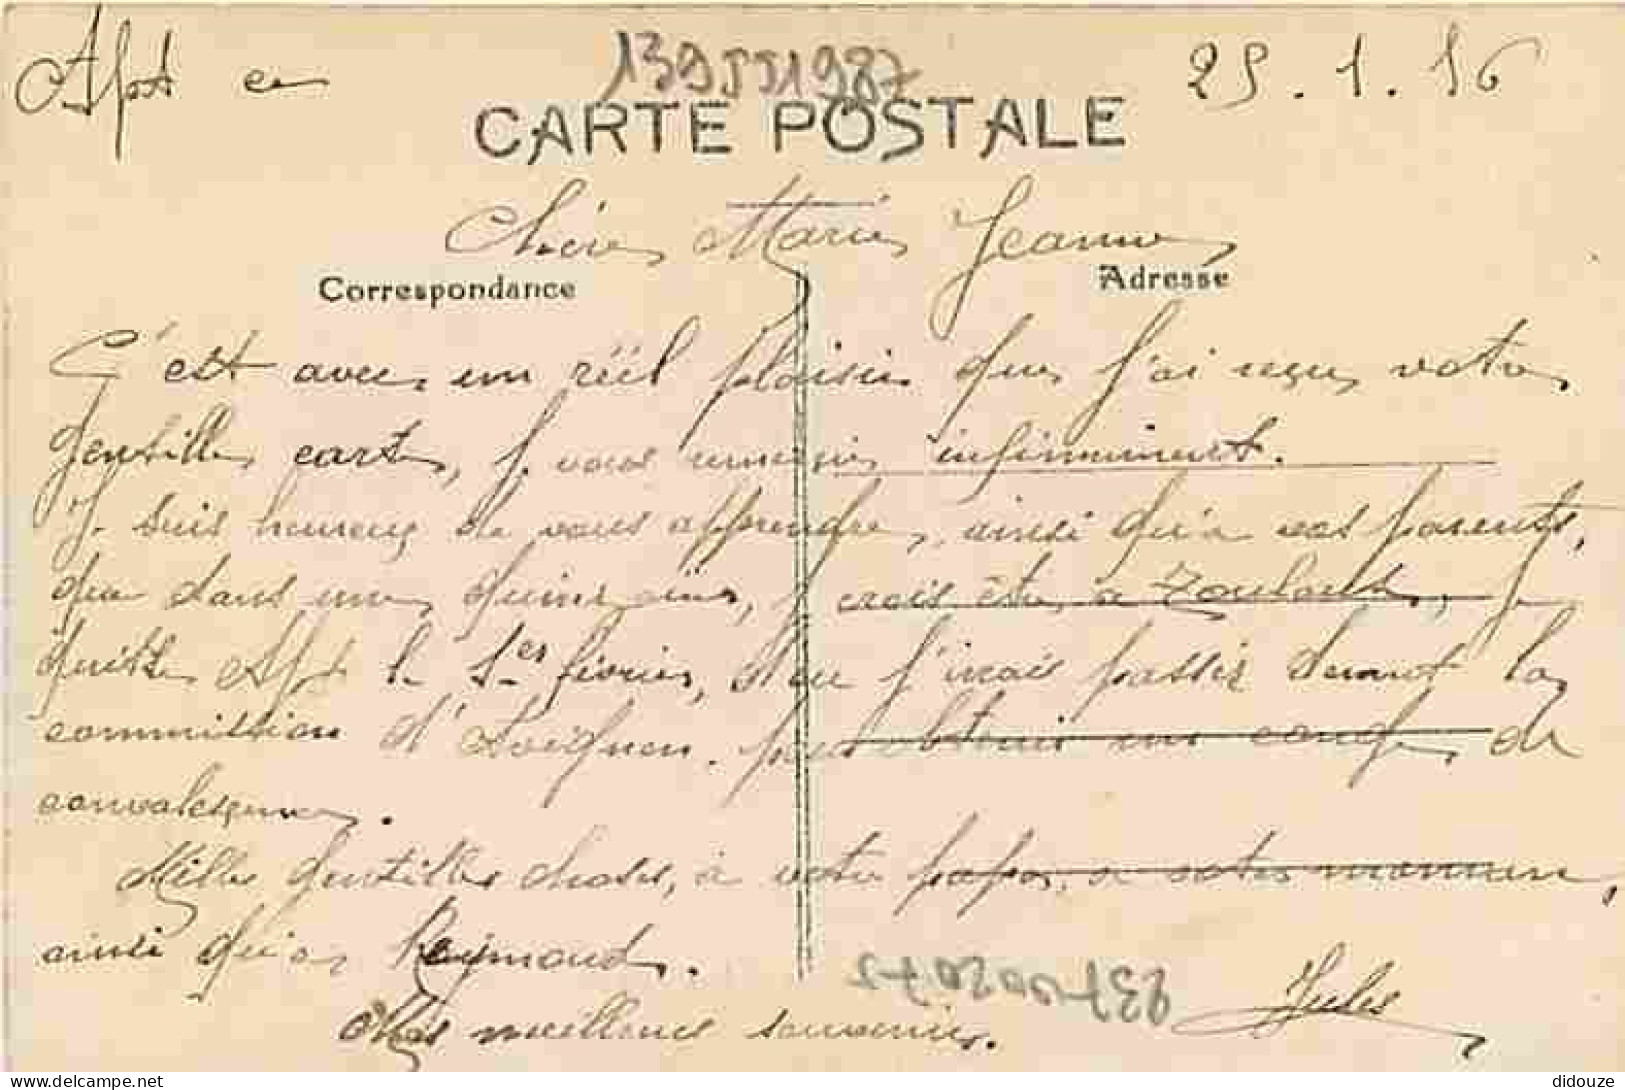 Apt ce 25.1.16
139551987
CARTE POSTALE
Chère Marie Jeanne,
Correspondance Adresse
C'est avec un réel plaisir que j'ai reçu votre
gentille carte, je vous remercie infiniment.
Je suis heureux de vous apprendre, ainsi qu'à vos parents,
que dans une quinzaine, je crois être à Toulouse, je
quitte Apt le 1er février, et j'irai passer devant la
commission d'Avignon pour obtenir un congé de
convalescence.
Mille gentilles choses, à votre papa, à votre maman,
ainsi qu'à Raymond.
Mes meilleurs souvenirs.
Jules
delcampe.net
didouze